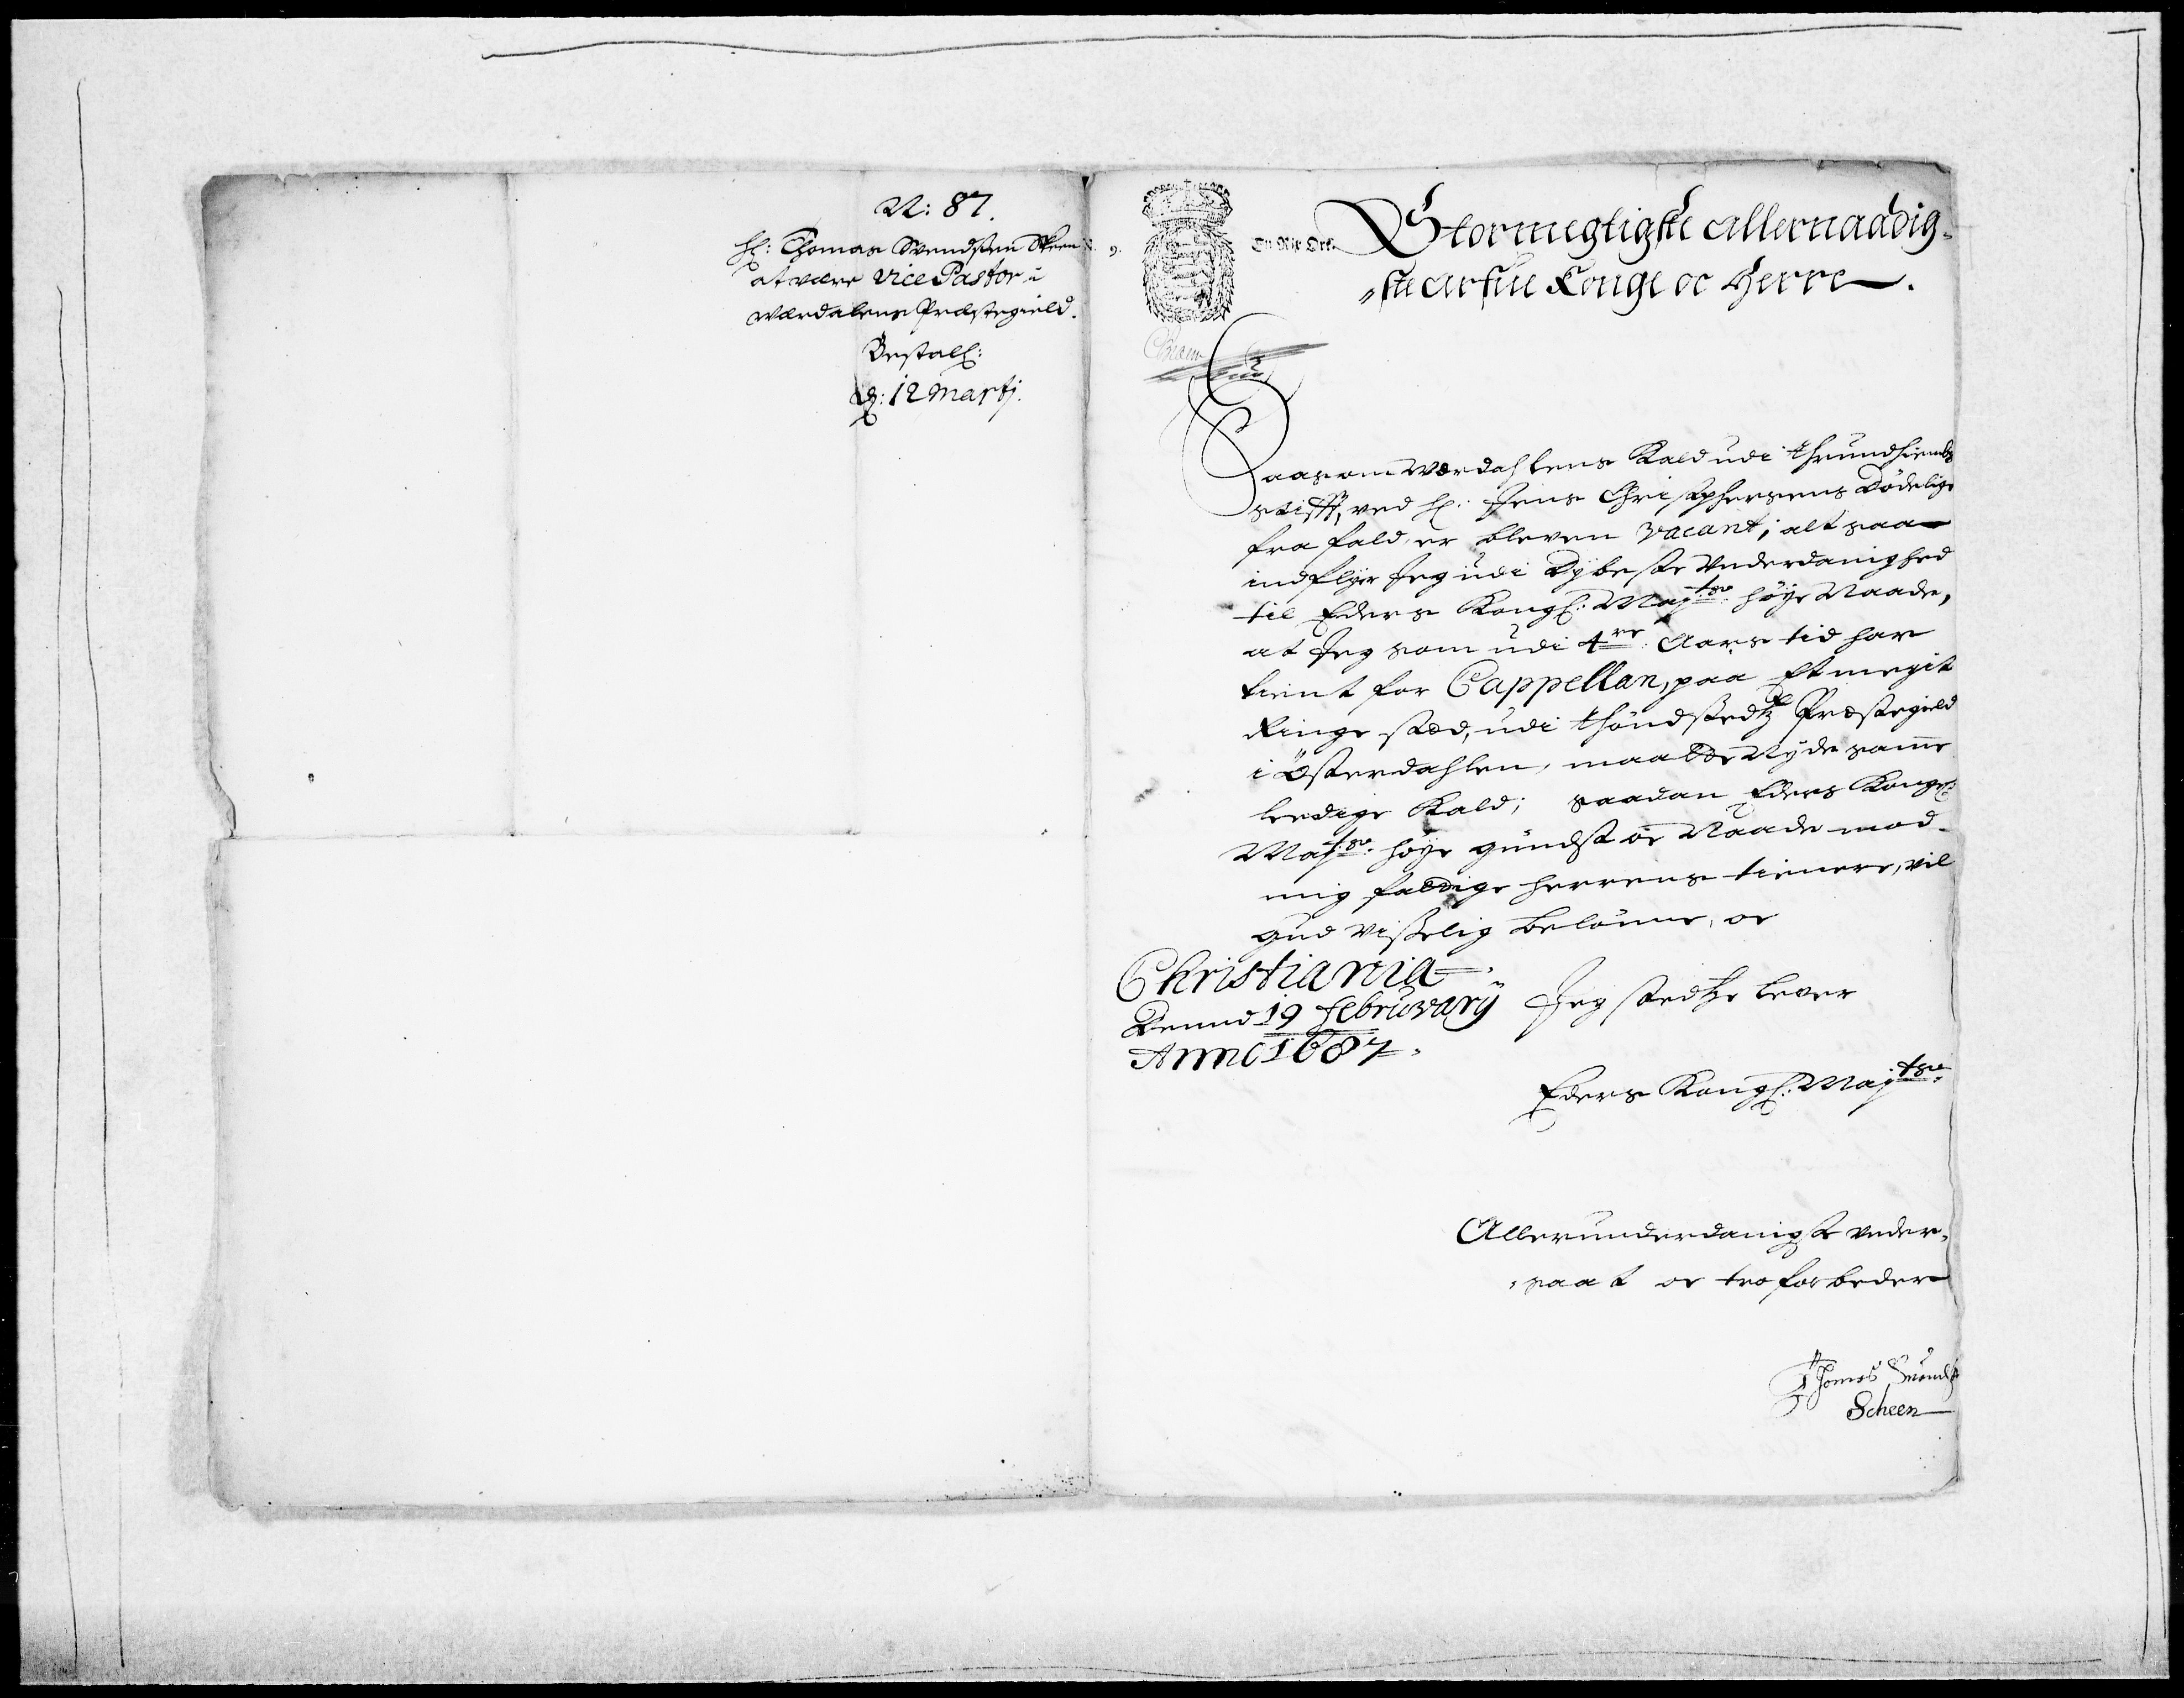 N: 87.
H: Thomas Svendsen Skeen
at være Vice Pastor i
Værdalens Præstegield.
Bestall:
d: 12 Martj.
N. 9.
En Rix Ort.
Stormegtigste Allernaadig-
ste Arfue Konge oc Herre.
Saasom Værdahlens Kald udi Thrundhiembs
Stifft, ved H: Jens Christophersens Dödelige
frafald, er bleven vacant; alt saa
indflyr Jeg udi Dybeste Underdanighed
til Eders Kongl: Maytts. höye Naade,
at Jeg som udi 4re. Aars tid har
tient for Cappellan, paa Et megit
Ringe stæd, udi Thöndsetz Præstegield
i Österdahlen, maatte Nyde samme
ledige Kald; saadan Eders Kongl:
Maytts. höye gundst oc Naade mod
mig fattige herrens tienere, vil
Gud visselig belönne, oc
Christiania
Dend 19 februarij
Anno 1687.
Jeg stedtze lever
Eders Kongl: Maytts.
Allerunderdanigste under-
saat oc tro forbedere
Thomas Suends
Scheen